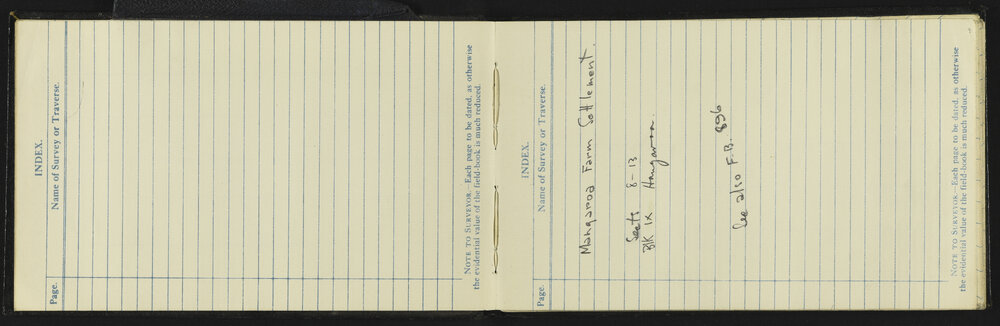 INDEX.
Page. Name of Survey or Traverse.
NOTE TO SURVEYOR.—Each page to be dated, as otherwise
the evidential value of the field-book is much reduced.
INDEX.
Page. Name of Survey or Traverse.
Mangaroa Farm Settlement.
Sects 8-13
Blk IX
See also F.B. 896
NOTE TO SURVEYOR.—Each page to be dated, as otherwise
the evidential value of the field-book is much reduced.